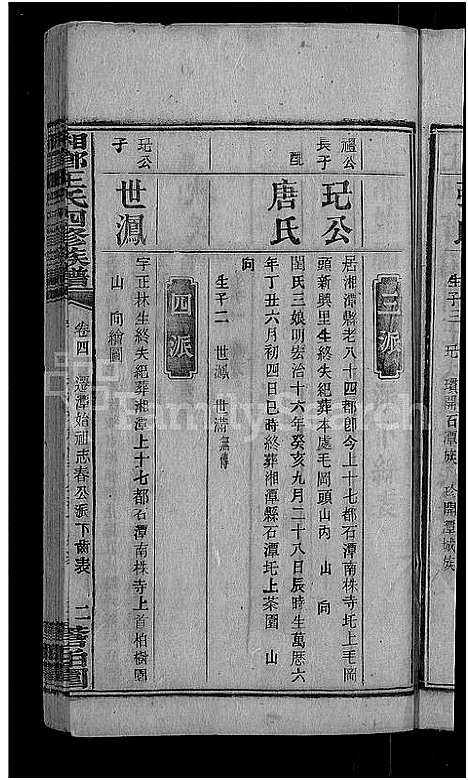 生子三 玘
瓆開石潭族
珍開潭城族
三派
禮公長子
玘公
居湘潭縣老八十四都卽今上十七都南株寺圫上毛岡
頭新興里生終失紀葬本處毛岡頭山丙 山 向
配
唐氏
閨氏三娘明宏治十六年癸亥九月二十八日辰時生萬厯六
年丁丑六月初四日巳時終葬湘潭縣石潭圫上茶園 山
向
生子二 世鳳 世滿無傳
四派
玘公子
世鳳
字正林生終失紀葬湘潭上十七都石潭南株寺上首柏樹園
山 向繪圖
湘鄉王氏四修族譜
卷四
遷潭始祖志春公派下齒表
二
FamilySearch